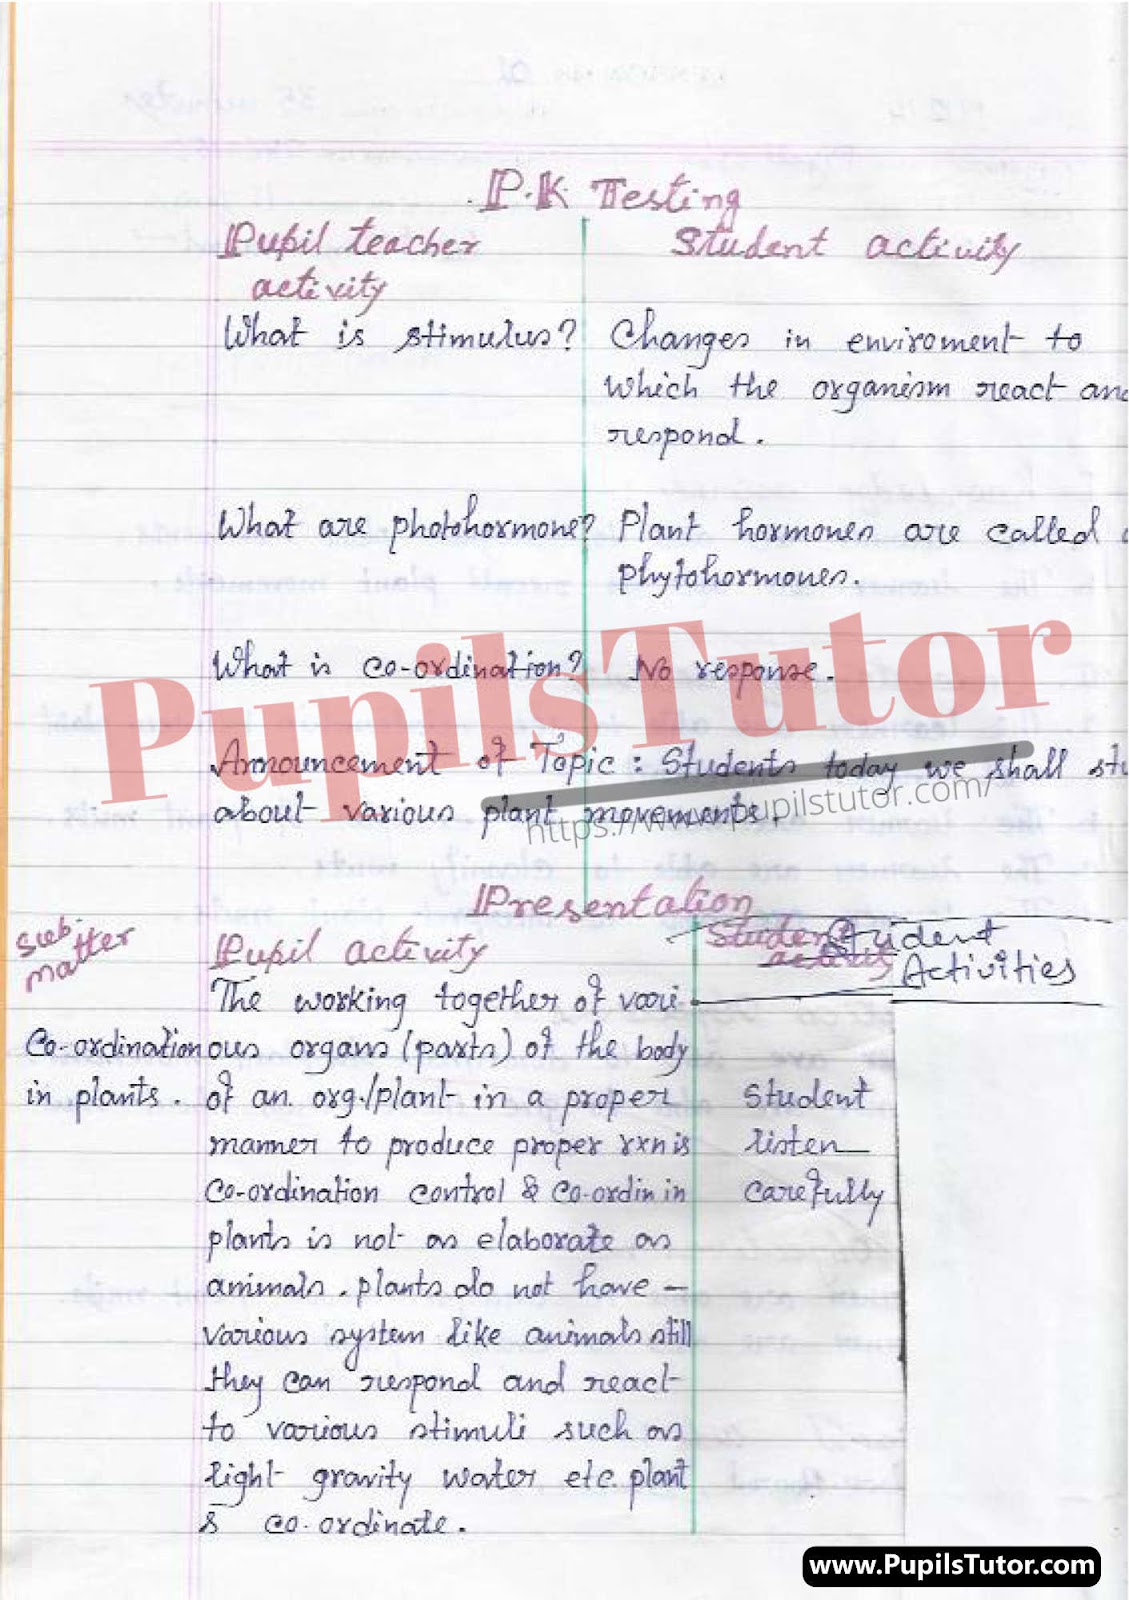 P.K Testing
Pupil teacher activity
Student activity
What is stimulus?
Changes in enviroment to
which the organism react and
respond.
What are photohormone?
Plant hormones are called
phytohormones.
What is co-ordination?
No response.
Announcement of Topic : Students today we shall stu
about various plant movements.
PupilsTutor
https://www.pupilstutor.com/
Presentation
Sub matter
Pupil activity
Student activity
Student
Activities
The working together of vari-
Co-ordination
ous organs (parts) of the body
in plants.
of an org./plant in a proper
manner to produce proper rxn is
co-ordination control & co-ordin in
plants is not as elaborate as
animals. plants do not have -
various system like animals still
they can respond and react
to various stimuli such as
light gravity water etc. plant
s co-ordinate.
Student
listen
carefully
www.PupilsTutor.com